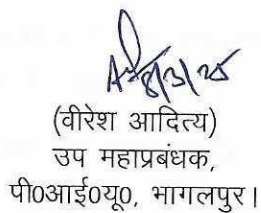 8/3/25
(वीरेश आदित्य)
उप महाप्रबंधक,
पी0आई0यू0, भागलपुर।